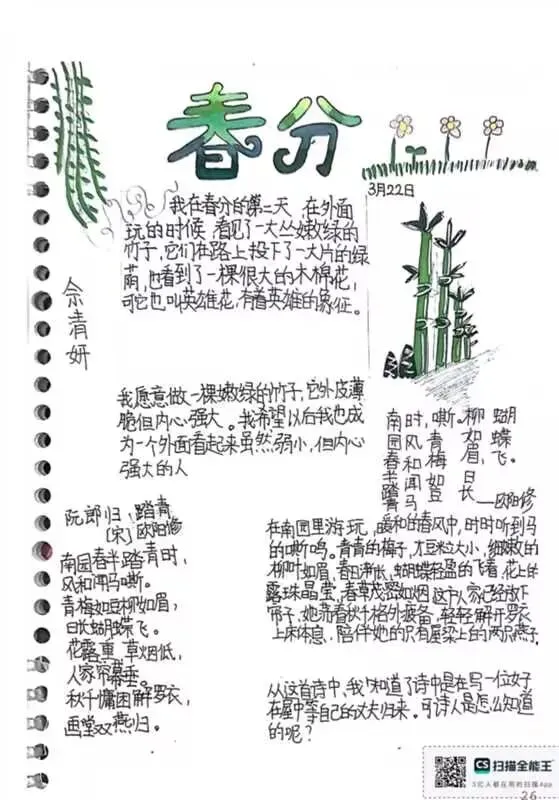 春分
3月22日
我在春分的第二天,在外面
玩的时候,看见了一大丛嫩绿的
竹子,它们在路上投下了一大片的绿
荫,也看到了一棵很大的木棉花,
可它也叫英雄花,有着英雄的象征。
佘清妍
我愿意做一棵嫩绿的竹子,它外皮薄
脆但内心强大。我希望以后我也成
为一个外面看起来虽然弱小,但内心
强大的人
南园春半踏青
时,风和闻马
嘶。青梅如
柳如眉,日长
蝴蝶飞。
——欧阳修
阮郎归·踏青
[宋]欧阳修
南园春半踏青时,
风和闻马嘶。
青梅如豆柳如眉,
日长蝴蝶飞。
花露重,草烟低,
人家帘幕垂。
秋千慵困解罗衣,
画堂双燕归。
在南园里游玩,暖和的春风中,时时听到马
的嘶鸣。青青的梅子,才豆粒大小,细嫩的
柳叶如眉,春日渐长,蝴蝶轻盈的飞着,花上的
露珠晶莹,春草茂密如烟,这户人家已经放下
帘子,她荡着秋千格外疲备,轻轻解开罗衣
上床休息,陪伴她的只有屋梁上的两只燕子.
从这首诗中,我知道了诗中是在写一位女子
在屋中等自己的丈夫归来。可诗人是怎么知道
的呢?
CS 扫描全能王
3亿人都在用的扫描App
26